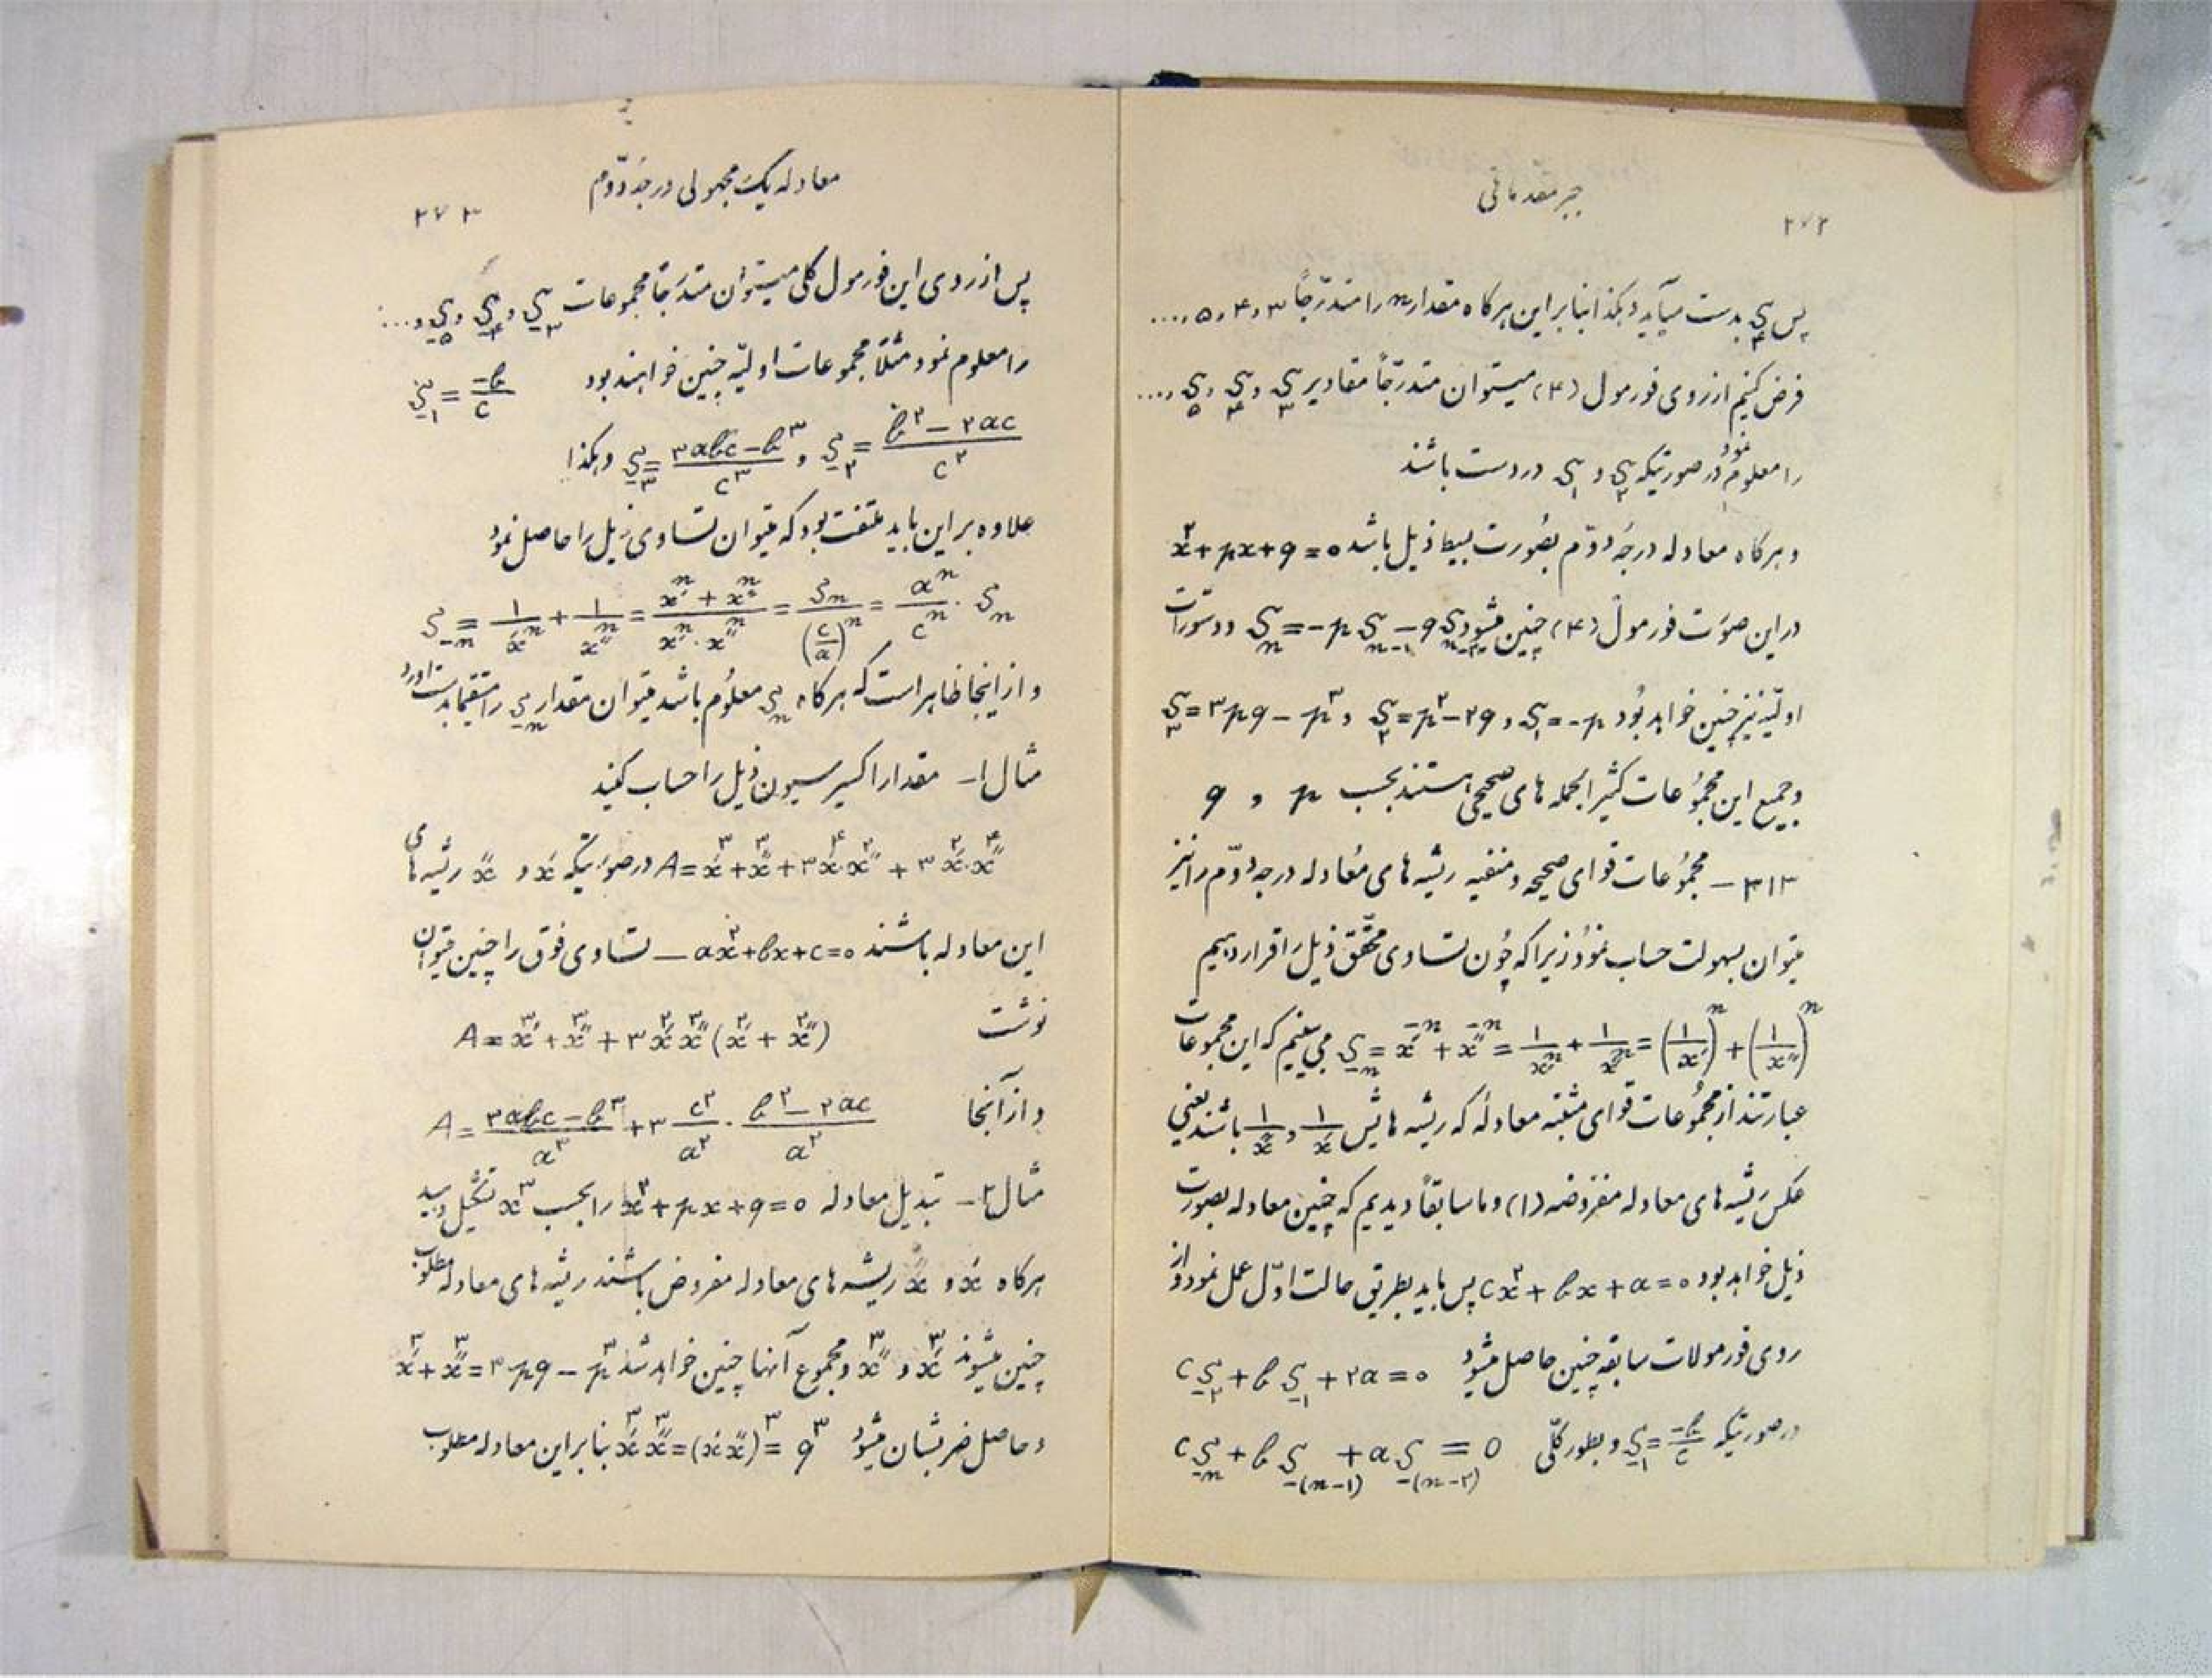 ۲۷۲
جبر مقدماتی
پس S₃ بدست میآید و هکذا بنابراین هرگاه مقدار n را متدرّجاً ۳ و ۴ و ۵ و ....
فرض کنیم از روی فورمول (۴) میتوان متدرّجاً مقادیر S₃ و S₄ و S₅ و ....
را معلوم نمود در صورتیکه S₂ و S₁ در دست باشند
و هرگاه معادله درجه دوّم بصورت بسیط ذیل باشد x² + px + q = ۰
در این صورت فورمول (۴) چنین میشود Sₙ = −p Sₙ₋₁ − q Sₙ₋₂ و دستورات
اولیّه نیز چنین خواهد بود S₁ = −p و S₂ = p² − ۲q و S₃ = ۳pq − p³
و جمیع این مجموعات کثیرالجمله های صحیحی هستند بحسب p و q
۳۱۳ — مجموعات قوای صحیحه و منفیه ریشه های معادله درجه دوّم را نیز
میتوان بسهولت حساب نمود زیرا که چون تساوی محقّق ذیل را قرار دهیم
S₋ₙ = x′⁻ⁿ + x″⁻ⁿ = ۱/x′ⁿ + ۱/x″ⁿ = (۱/x′)ⁿ + (۱/x″)ⁿ می بینیم که این مجموعات
عبارتند از مجموعات قوای مثبته معادله که ریشه هایش ۱/x′ و ۱/x″ باشند یعنی
عکس ریشه های معادله مفروضه (۱) و ما سابقاً دیدیم که چنین معادله بصورت
ذیل خواهد بود cx² + bx + a = ۰ پس باید بطریق حالت اوّل عمل نمود و از
روی فورمولات سابقه چنین حاصل میشود cS₋₂ + bS₋₁ + ۲a = ۰
در صورتیکه S₋₁ = −b/c و بطور کلّی cS₋ₙ + bS₋₍ₙ₋₁₎ + aS₋₍ₙ₋₂₎ = 0
معادله یک مجهولی درجه دوّم
۲۷۳
پس از روی این فورمول کلی میتوان متدرّجاً مجموعات S₋₃ و S₋₄ و S₋₅ و ....
را معلوم نمود مثلاً مجموعات اولیّه چنین خواهند بود S₋₁ = −b/c
S₋₂ = (b² − ۲ac)/c² و S₋₃ = (۳abc − b³)/c³ و هکذا
علاوه بر این باید ملتفت بود که میتوان تساوی ذیل را حاصل نمود
S₋ₙ = ۱/x′ⁿ + ۱/x″ⁿ = (x′ⁿ + x″ⁿ)/(x′ⁿ · x″ⁿ) = Sₙ/(c/a)ⁿ = aⁿ/cⁿ · Sₙ
و از اینجا ظاهر است که هرگاه Sₙ معلوم باشد میتوان مقدار S₋ₙ را مستقیماً بدست آورد
مثال ۱— مقدار اکسپرسیون ذیل را حساب کنید
A = x′³ + x″³ + ۳x′⁴·x″² + ۳x′²·x″⁴ در صورتیکه x′ و x″ ریشه های
این معادله باشند ax² + bx + c = ۰ — تساوی فوق را چنین میتوان
نوشت A = x′³ + x″³ + ۳x′²x″²(x′² + x″²)
و از آنجا A = (۳abc − b³)/a³ + ۳ c²/a² · (b² − ۲ac)/a²
مثال ۲— تبدیل معادله x² + px + q = ۰ را بحسب x³ تشکیل دهید
هرگاه x′ و x″ ریشه های معادله مفروض باشند ریشه های معادله مطلوب
چنین میشوند x′³ و x″³ و مجموع آنها چنین خواهد شد x′³ + x″³ = ۳pq − p³
و حاصل ضربشان میشود x′³x″³ = (x′x″)³ = q³ بنابراین معادله مطلوب